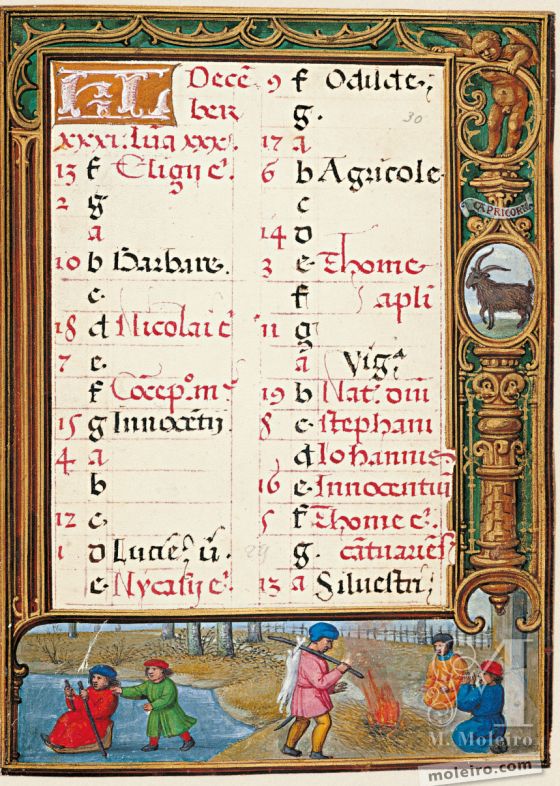 KL Decē
ber
xxxi. lūa xxx.
13 f Eligii c̄.
2 g
a
10 b Barbare.
c.
18 d Nicolai c̄
7 e.
f Cōcep.º m.
15 g Innocētij
4 a
b
12 c.
1 d Lucie. v̄.
e. Nycasij c̄.
9 f Odilde
g.
30
17 a
6 b Agricole
c
14 d
3 e Thome
f apl̄i
11 g
a Vig.ª
19 b Nat. dn̄i
8 c Stephani
d Iohannis
16 e Innocentiū
5 f Thome c̄.
g. cātuariēs
13 a Silvestri
29
CAPRICORN
M. Moleiro
moleiro.com